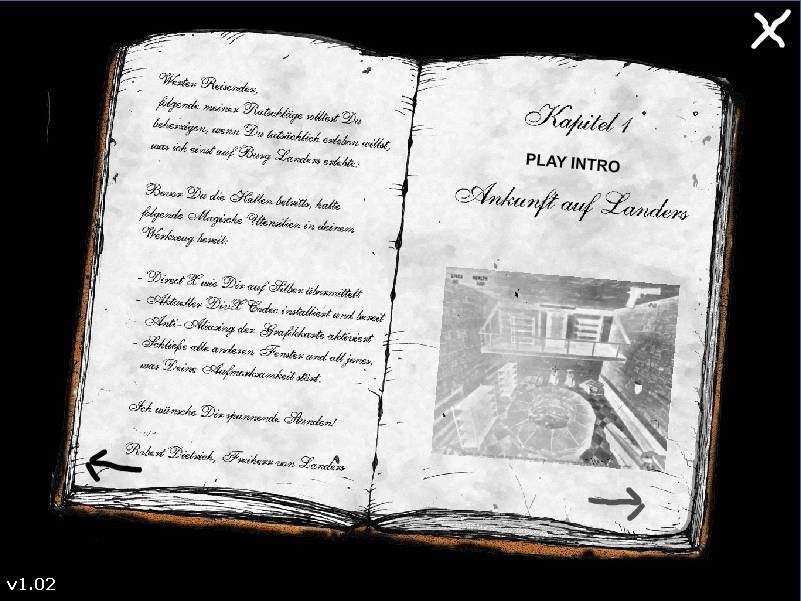 Werter Reisender,
folgende meiner Ratschläge solltest Du
beherzigen, wenn Du tatsächlich erleben willst,
was ich einst auf Burg Landers erlebte:
Bevor Du die Hallen betritts, halte
folgende Magische Utensilien in deinem
Werkzeug bereit:
- Direct X wie Dir auf Silber übermittelt
- Aktueller DivX Codec installiert und bereit
- Anti-Aliasing der Grafikkarte aktiviert
- Schließe alle anderen Fenster und all jenes,
was Deine Aufmerksamkeit stört.
Ich wünsche Dir spannende Stunden!
Robert Dietrich, Freiherr von Landers
Kapitel 1
PLAY INTRO
Ankunft auf Landers
HEALTH
v1.02